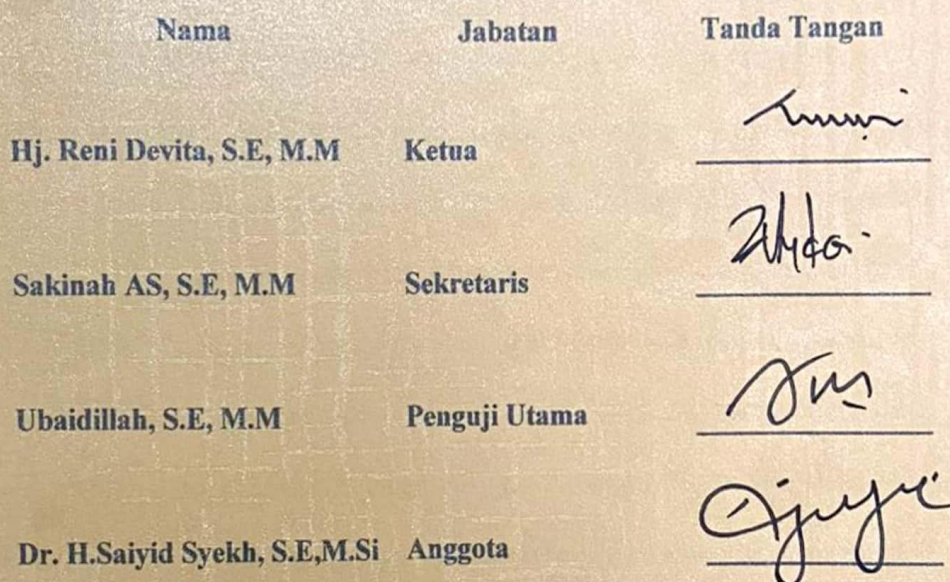 Nama Jabatan Tanda Tangan
Hj. Reni Devita, S.E, M.M Ketua
Sakinah AS, S.E, M.M Sekretaris
Ubaidillah, S.E, M.M Penguji Utama
Dr. H.Saiyid Syekh, S.E,M.Si Anggota